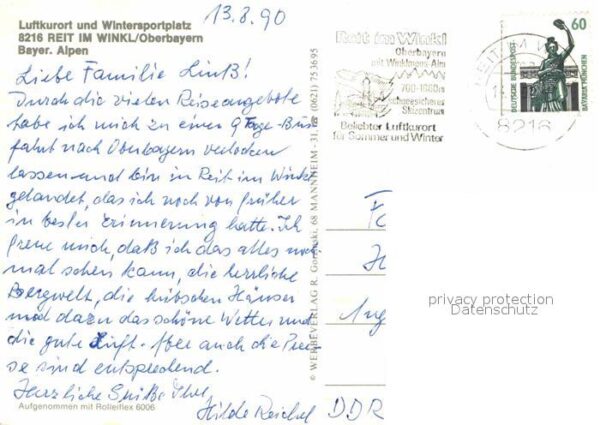 13.8.90
Luftkurort und Wintersportplatz
8216 REIT IM WINKL/Oberbayern
Bayer. Alpen
Liebe Familie Linß!
Durch die vielen Reiseangebote
habe ich mich zu einer 9 Tage-Bus
fahrt nach Oberbayern verlocken
lassen und bin in Reit im Winkl
gelandet, das ich noch von früher
in bester Erinnerung hatte. Ich
freue mich, daß ich das alles noch
mal sehen kann, die herrliche
Bergwelt, die hübschen Häuser
und dazu das schöne Wetter und
die gute Luft. Aber auch die Prei-
se sind entsprechend.
Herzliche Grüße Ihre
Hilde Reichel
Aufgenommen mit Rolleiflex 6006
© WERBEVERLAG R. 68 MANNHEIM-31, Tel. (0621) 753695
Reit im Winkl
Oberbayern
mit Winklmoos-Alm
700-1800m
schneesicheres
Skizentrum
Beliebter Luftkurort
für Sommer und Winter
REIT IM W
8216
60
DEUTSCHE BUNDESPOST
BAVARIA MÜNCHEN
Fa
H
Aug
DDR
privacy protection
Datenschutz